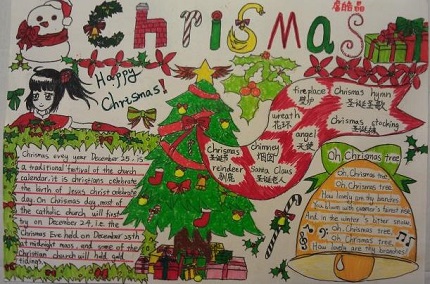 Chrismas
Happy
Chrismas!
fireplace
壁炉
Chrismas hymn
圣诞圣歌
wreath
花环
Chrismas stocking
圣诞袜
angel
天使
chimney
烟囱
Chrismas
圣诞节
reindeer
驯鹿
Santa Claus
圣诞老人
Chrismas evey year December 25, is
a traditional festival of the church
calendar, it is chrisjians celebrate
the birth of Jesus christ celebrate
day. On Chrismas day, most of
the catholic church will first
by on December 24, i.e. the
Chrismas Eve held on December 25th
at midnight mass, and some of the
Christian church will held gold
tidings.
Oh Chrismas tree
Oh, Chrismas tree
Oh, Chrismas tree,
How lovely are thy branches
And in the winter's bitter snow
Oh, Chrismas tree,
Oh, Chrismas tree,
How lovely are thy branches!